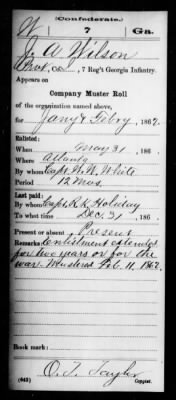 (Confederate.)
W 7 Ga.
J. A. Wilson
Pvt, Co. , 7 Reg't Georgia Infantry.
Appears on
Company Muster Roll
of the organization named above,
for Jany & Febry, 1862.
Enlisted:
When May 31, 186 .
Where Atlanta
By whom Capt. W. W. White
Period 12 Mos.
Last paid:
By whom Capt. R. K. Holiday
To what time Dec. 31, 186 .
Present or absent Present
Remarks: enlistment extended
for two years or for the
war. Mustered Feb. 11, 1862.
Book mark:
O. T. Taylor
(642) Copyist.